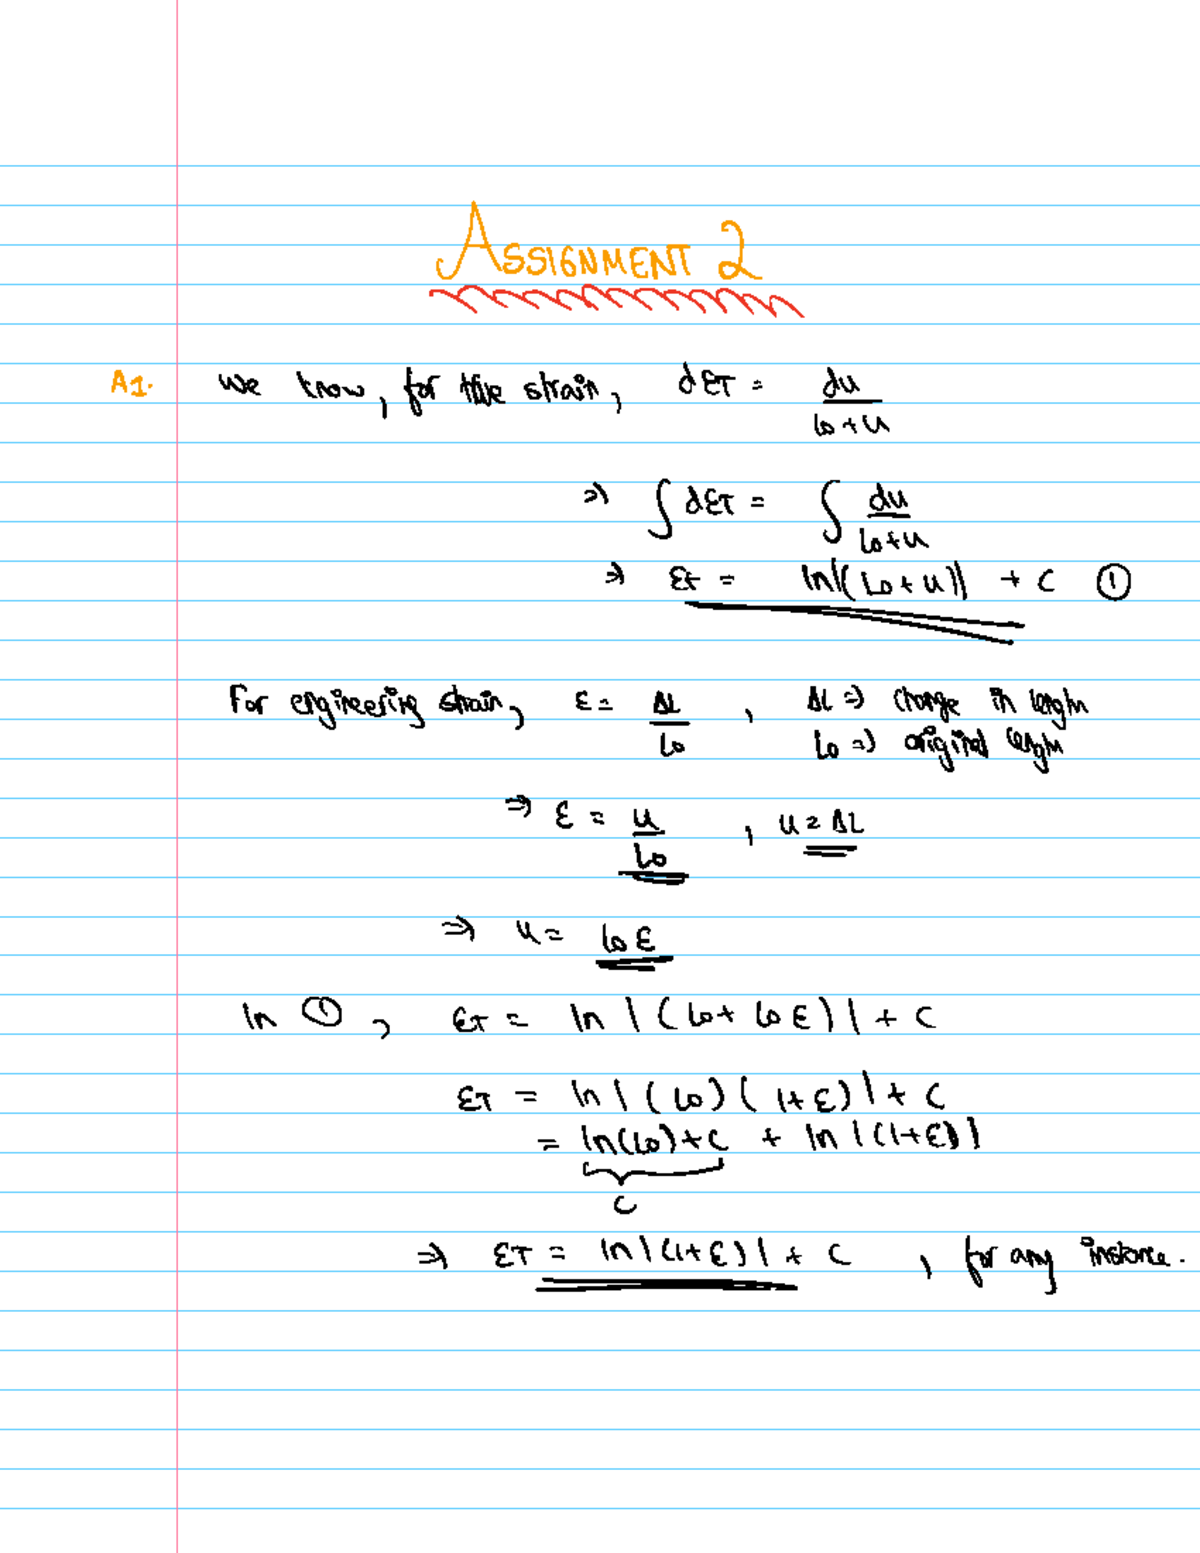 ASSIGNMENT 2
A1. We know, for true strain, dƐT = du / (Lo + u)
⇒ ∫ dƐT = ∫ du / (Lo + u)
⇒ Ɛt = ln|(Lo + u)| + C ①
For engineering strain, Ɛ = ΔL / Lo , ΔL ⇒ change in length
Lo ⇒ original length
⇒ Ɛ = u / Lo , u = ΔL
⇒ u = LoƐ
In ①, ƐT = ln |(Lo + LoƐ)| + C
ƐT = ln |(Lo)(1+Ɛ)| + C
= ln(Lo)+C + ln |(1+Ɛ)|
C
⇒ ƐT = ln |(1+Ɛ)| + C , for any instance.